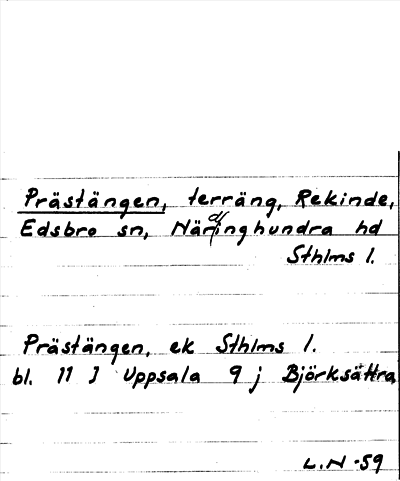 Prästängen, terräng, Rekinde,
Edsbro sn, Närdinghundra hd
Sthlms l.
Prästängen, ek Sthlms l.
bl. 11 I Uppsala 9 j Björksättra
L.N -59